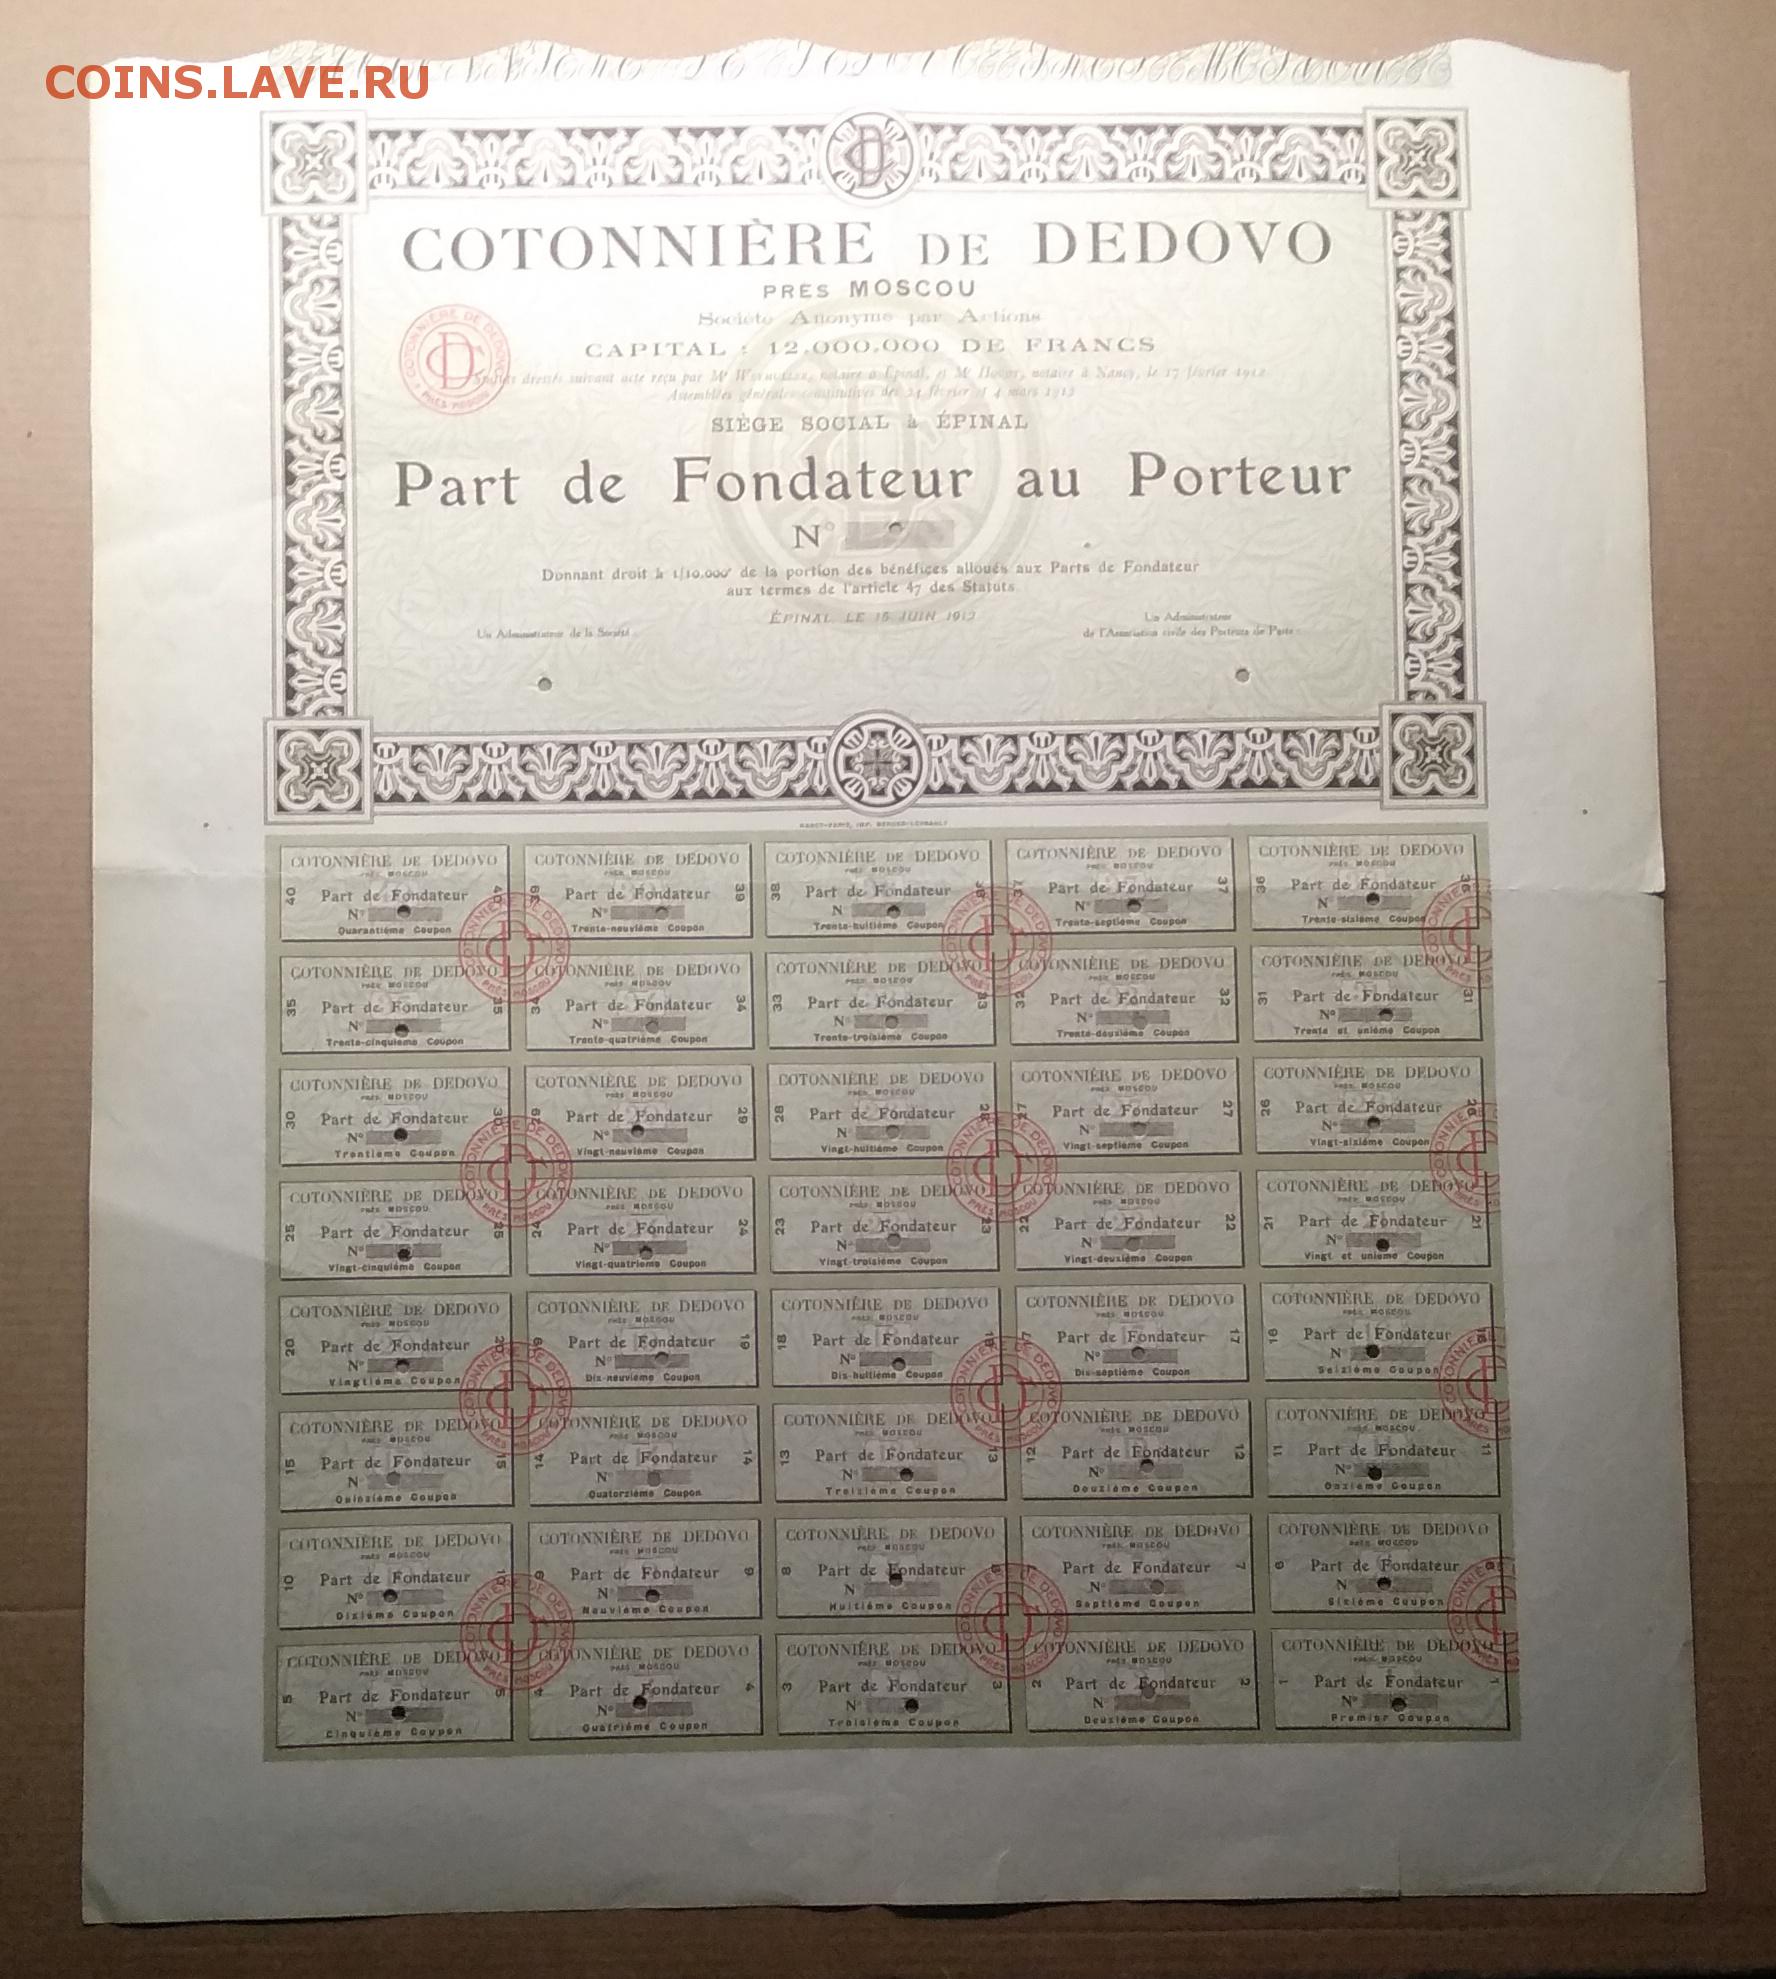 COINS.LAVE.RU
COTONNIÈRE DE DEDOVO
PRÈS MOSCOU
Société Anonyme par Actions
CAPITAL : 12.000.000 DE FRANCS
Statuts dressés suivant acte reçu par Me notaire à Épinal, et Me notaire à Nancy, le 17 février 1912
Assemblées générales constitutives des 24 février et 4 mars 1912
SIÈGE SOCIAL à ÉPINAL
Part de Fondateur au Porteur
N°
Donnant droit à 1/10.000e de la portion des bénéfices alloués aux Parts de Fondateur
aux termes de l'article 47 des Statuts
ÉPINAL LE 15 JUIN 1912
Un Administrateur de la Société
Un Administrateur
de l'Association civile des Porteurs de Parts
COTONNIÈRE DE DEDOVO PRÈS MOSCOU
NANCY-PARIS, IMP. BERGER-LEVRAULT
40 COTONNIÈRE DE DEDOVO 40
PRÈS MOSCOU
Part de Fondateur
N°
Quarantième Coupon
39 COTONNIÈRE DE DEDOVO 39
PRÈS MOSCOU
Part de Fondateur
N°
Trente-neuvième Coupon
38 COTONNIÈRE DE DEDOVO 38
PRÈS MOSCOU
Part de Fondateur
N°
Trente-huitième Coupon
37 COTONNIÈRE DE DEDOVO 37
PRÈS MOSCOU
Part de Fondateur
N°
Trente-septième Coupon
36 COTONNIÈRE DE DEDOVO 36
PRÈS MOSCOU
Part de Fondateur
N°
Trente-sixième Coupon
35 COTONNIÈRE DE DEDOVO 35
PRÈS MOSCOU
Part de Fondateur
N°
Trente-cinquième Coupon
34 COTONNIÈRE DE DEDOVO 34
PRÈS MOSCOU
Part de Fondateur
N°
Trente-quatrième Coupon
33 COTONNIÈRE DE DEDOVO 33
PRÈS MOSCOU
Part de Fondateur
N°
Trente-troisième Coupon
32 COTONNIÈRE DE DEDOVO 32
PRÈS MOSCOU
Part de Fondateur
N°
Trente-deuxième Coupon
31 COTONNIÈRE DE DEDOVO 31
PRÈS MOSCOU
Part de Fondateur
N°
Trente et unième Coupon
30 COTONNIÈRE DE DEDOVO 30
PRÈS MOSCOU
Part de Fondateur
N°
Trentième Coupon
29 COTONNIÈRE DE DEDOVO 29
PRÈS MOSCOU
Part de Fondateur
N°
Vingt-neuvième Coupon
28 COTONNIÈRE DE DEDOVO 28
PRÈS MOSCOU
Part de Fondateur
N°
Vingt-huitième Coupon
27 COTONNIÈRE DE DEDOVO 27
PRÈS MOSCOU
Part de Fondateur
N°
Vingt-septième Coupon
26 COTONNIÈRE DE DEDOVO 26
PRÈS MOSCOU
Part de Fondateur
N°
Vingt-sixième Coupon
25 COTONNIÈRE DE DEDOVO 25
PRÈS MOSCOU
Part de Fondateur
N°
Vingt-cinquième Coupon
24 COTONNIÈRE DE DEDOVO 24
PRÈS MOSCOU
Part de Fondateur
N°
Vingt-quatrième Coupon
23 COTONNIÈRE DE DEDOVO 23
PRÈS MOSCOU
Part de Fondateur
N°
Vingt-troisième Coupon
22 COTONNIÈRE DE DEDOVO 22
PRÈS MOSCOU
Part de Fondateur
N°
Vingt-deuxième Coupon
21 COTONNIÈRE DE DEDOVO 21
PRÈS MOSCOU
Part de Fondateur
N°
Vingt et unième Coupon
20 COTONNIÈRE DE DEDOVO 20
PRÈS MOSCOU
Part de Fondateur
N°
Vingtième Coupon
19 COTONNIÈRE DE DEDOVO 19
PRÈS MOSCOU
Part de Fondateur
N°
Dix-neuvième Coupon
18 COTONNIÈRE DE DEDOVO 18
PRÈS MOSCOU
Part de Fondateur
N°
Dix-huitième Coupon
17 COTONNIÈRE DE DEDOVO 17
PRÈS MOSCOU
Part de Fondateur
N°
Dix-septième Coupon
16 COTONNIÈRE DE DEDOVO 16
PRÈS MOSCOU
Part de Fondateur
N°
Seizième Coupon
15 COTONNIÈRE DE DEDOVO 15
PRÈS MOSCOU
Part de Fondateur
N°
Quinzième Coupon
14 COTONNIÈRE DE DEDOVO 14
PRÈS MOSCOU
Part de Fondateur
N°
Quatorzième Coupon
13 COTONNIÈRE DE DEDOVO 13
PRÈS MOSCOU
Part de Fondateur
N°
Treizième Coupon
12 COTONNIÈRE DE DEDOVO 12
PRÈS MOSCOU
Part de Fondateur
N°
Douzième Coupon
11 COTONNIÈRE DE DEDOVO 11
PRÈS MOSCOU
Part de Fondateur
N°
Onzième Coupon
10 COTONNIÈRE DE DEDOVO 10
PRÈS MOSCOU
Part de Fondateur
N°
Dixième Coupon
9 COTONNIÈRE DE DEDOVO 9
PRÈS MOSCOU
Part de Fondateur
N°
Neuvième Coupon
8 COTONNIÈRE DE DEDOVO 8
PRÈS MOSCOU
Part de Fondateur
N°
Huitième Coupon
7 COTONNIÈRE DE DEDOVO 7
PRÈS MOSCOU
Part de Fondateur
N°
Septième Coupon
6 COTONNIÈRE DE DEDOVO 6
PRÈS MOSCOU
Part de Fondateur
N°
Sixième Coupon
5 COTONNIÈRE DE DEDOVO 5
PRÈS MOSCOU
Part de Fondateur
N°
Cinquième Coupon
4 COTONNIÈRE DE DEDOVO 4
PRÈS MOSCOU
Part de Fondateur
N°
Quatrième Coupon
3 COTONNIÈRE DE DEDOVO 3
PRÈS MOSCOU
Part de Fondateur
N°
Troisième Coupon
2 COTONNIÈRE DE DEDOVO 2
PRÈS MOSCOU
Part de Fondateur
N°
Deuxième Coupon
1 COTONNIÈRE DE DEDOVO 1
PRÈS MOSCOU
Part de Fondateur
N°
Premier Coupon